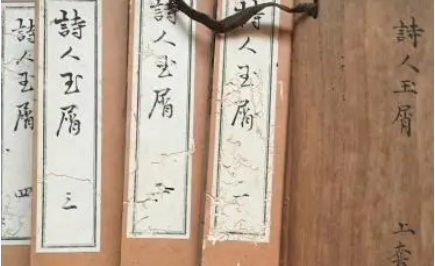 詩人玉屑
上套
詩人玉屑
一
詩人玉屑
二
詩人玉屑
三
詩人玉屑
四